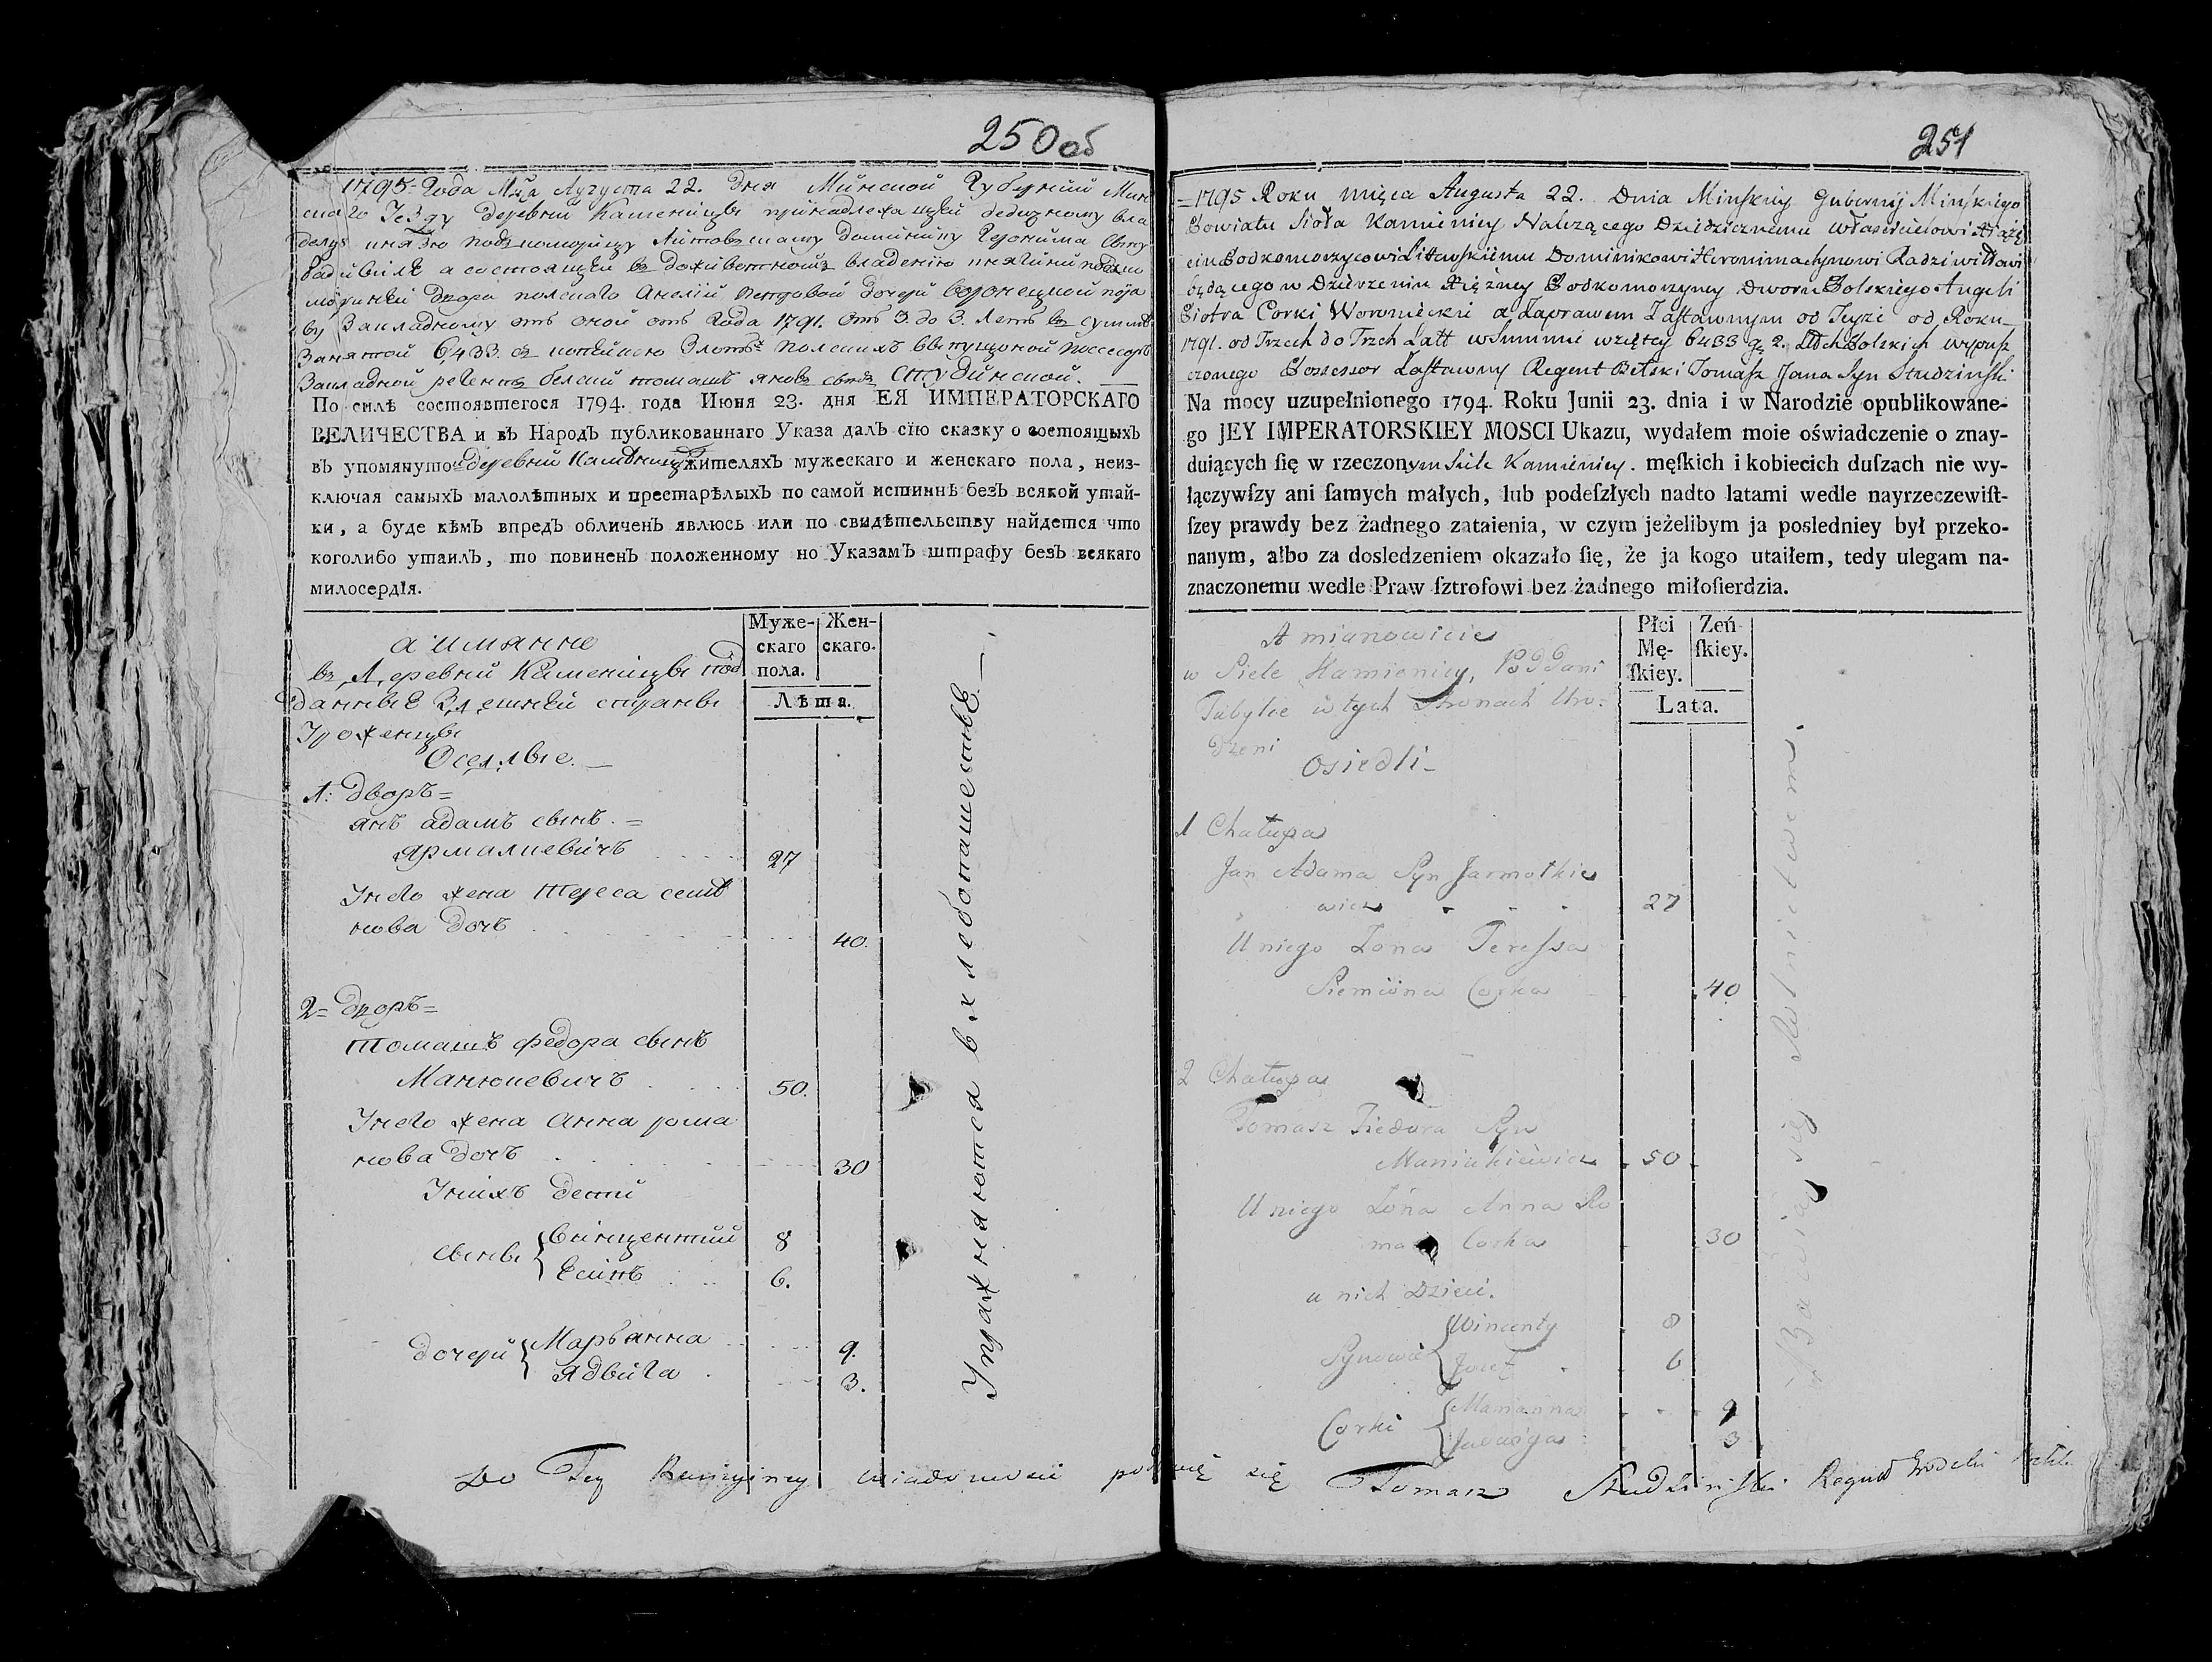 250об
1795-Года Мца Августа 22. дня Минской Губернии Мин
скаго Уезду деревни Каменицы принадлежащей дедизному вла
дельцу князю подкоморицу Литовскому доминику Героніма сыну
Радивилу а состоящей въ доживотномъ владению княгини подко
мориней двора полскаго Анелии петровой дочери воронецкой по пра
ву Закладному отъ оной отъ Года 1791. отъ 3. до 3. летъ въ сумме
Занятой 6,433. съ копейкою Злотъ полскихъ выпущоной посесоръ
Закладной регентъ белский томашъ яновъ сынъ Студинской.
По силѣ состоявшегося 1794. года Июня 23. дня ЕЯ ИМПЕРАТОРСКАГО
ВЕЛИЧЕСТВА и въ Народъ публикованнаго Указа далъ сїю сказку о состоящыхъ
въ упомянутой деревни Каменицы жителяхъ мужескаго и женскаго пола, неиз-
ключая самыхъ малолѣтных и престарѣлыхъ по самой истиннѣ безъ всякой утай-
ки, а буде кѣмъ впредъ обличенъ явлюсь или по свидѣтельству найдется что
коголибо утаилъ, то повиненъ положенному но Указамъ штрафу безъ всякаго
милосердїя.
Муже-
скаго
пола.
Жен-
скаго.
Лѣта.
а имянно
въ Деревни Каменицы под
данные Здешней стораны
Уроженцы
Оседлые.
1: дворъ=
янъ адамъ сынъ. =
Ярмалкевичъ 27
У него жена тереса семе
нова дочъ 40.
2= дворъ=
Томашъ федора сынъ
Манюкевичъ 50.
У него жена Анна рома
нова дочъ 30
У нихъ детий
сыны { Винцентий 8
Есипъ 6.
дочери { Марьянна 9.
Ядвига 3.
Упражняются в хлебопашестве
251
=1795 Roku mięca Augusta 22. Dnia Minskiey Gubernij Minskiego
Powiatu Sioła Kamienicy Nalezącego Dziedzicznemu właścicielowi Xiąże
ciu Podkomorzycowi Litewskiemu Dominikowi Heronima Synowi Radziwiłłowi
będącego w Dzierżeniu Xiężney Podkomorzyney Dworu Polskiego Angeli
Piotra Corki Woronieckie a Zaprawem Zastawnym od Teyze od Roku
1791. od Trzech do Trzch Latt w Summie wziętey 6433 gr 2. Złłch Polskich wypusz
czonego Possessor Zastawny Regent Belski Tomasz Jana Syn Studzinski
Na mocy uzupełnionego 1794. Roku Junii 23. dnia i w Narodzie opublikowane-
go JEY IMPERATORSKIEY MOSCI Ukazu, wydałem moie oświadczenie o znay-
duiących ſię w rzeczonym Siele Kamienicy. męſkich i kobiecich duſzach nie wy-
łączywſzy ani ſamych małych, lub podeſzłych nadto latami wedle nayrzeczewiſt-
ſzey prawdy bez żadnego zataienia, w czym jeżelibym ja posledniey był przeko-
nanym, albo za dosledzeniem okazało ſię, że ja kogo utaiłem, tedy ulegam na-
znaczonemu wedle Praw ſztrofowi bez żadnego miłoſierdzia.
Płci
Mę-
ſkiey.
Zeń-
ſkiey.
Lata.
A mianowicie
w Siele Kamienicy, Poddani
Tubylce w tych Stronach Uro:
dzeni
Osiedli-
1 Chałupa
Jan Adama Syn Jarmołkie
wicz 27
U niego Żona Teressa
Siemiona Corka 40
2 Chałupa
Tomasz Fiedora Syn
Maniukiewicz 50
U niego Żona Anna Ro
mana Corka 30
u nich Dzieci.
Synowie { Wincenty 8
Jozef 6
Corki { Marianna 9
Jadwiga 3
Bawią się Rolnictwem.
Do Tey Rewizyiney wiadomosci podpisuię się Tomasz Studzinski Regent